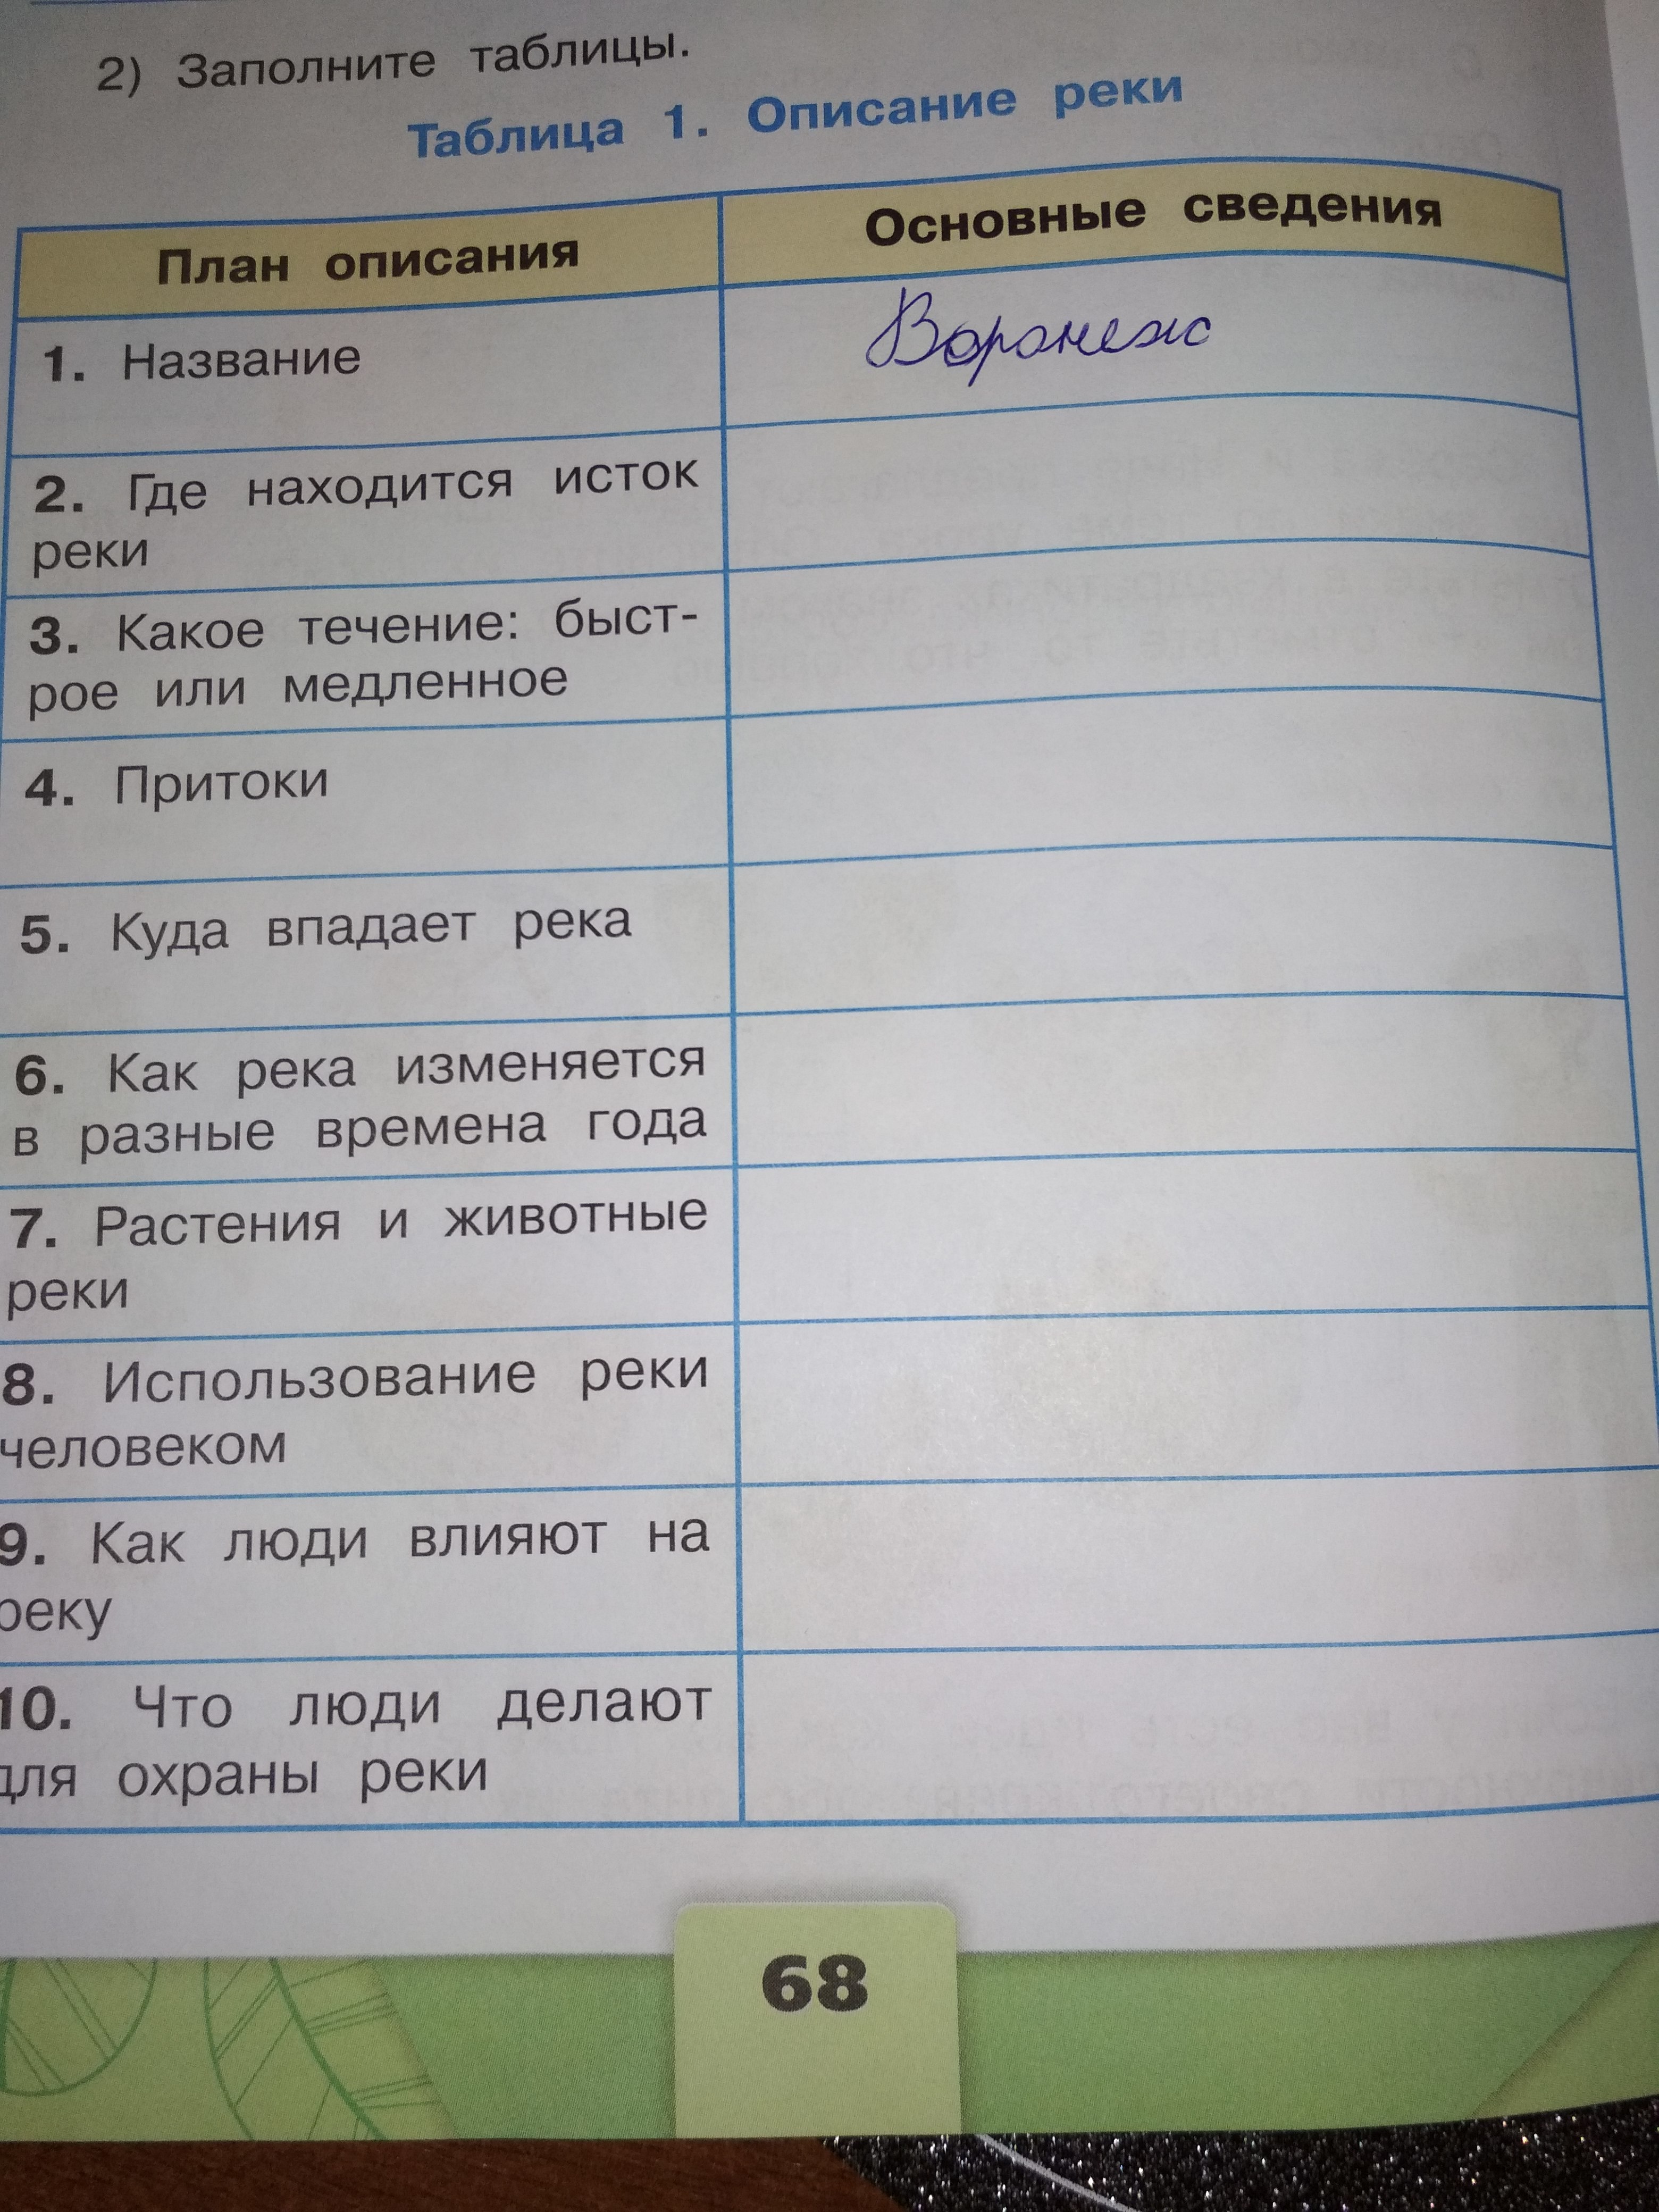 2) Заполните таблицы.
Таблица 1. Описание реки
План описания
Основные сведения
1. Название
Воронеж
2. Где находится исток
реки
3. Какое течение: быст-
рое или медленное
4. Притоки
5. Куда впадает река
6. Как река изменяется
в разные времена года
7. Растения и животные
реки
8. Использование реки
человеком
9. Как люди влияют на
реку
10. Что люди делают
для охраны реки
68